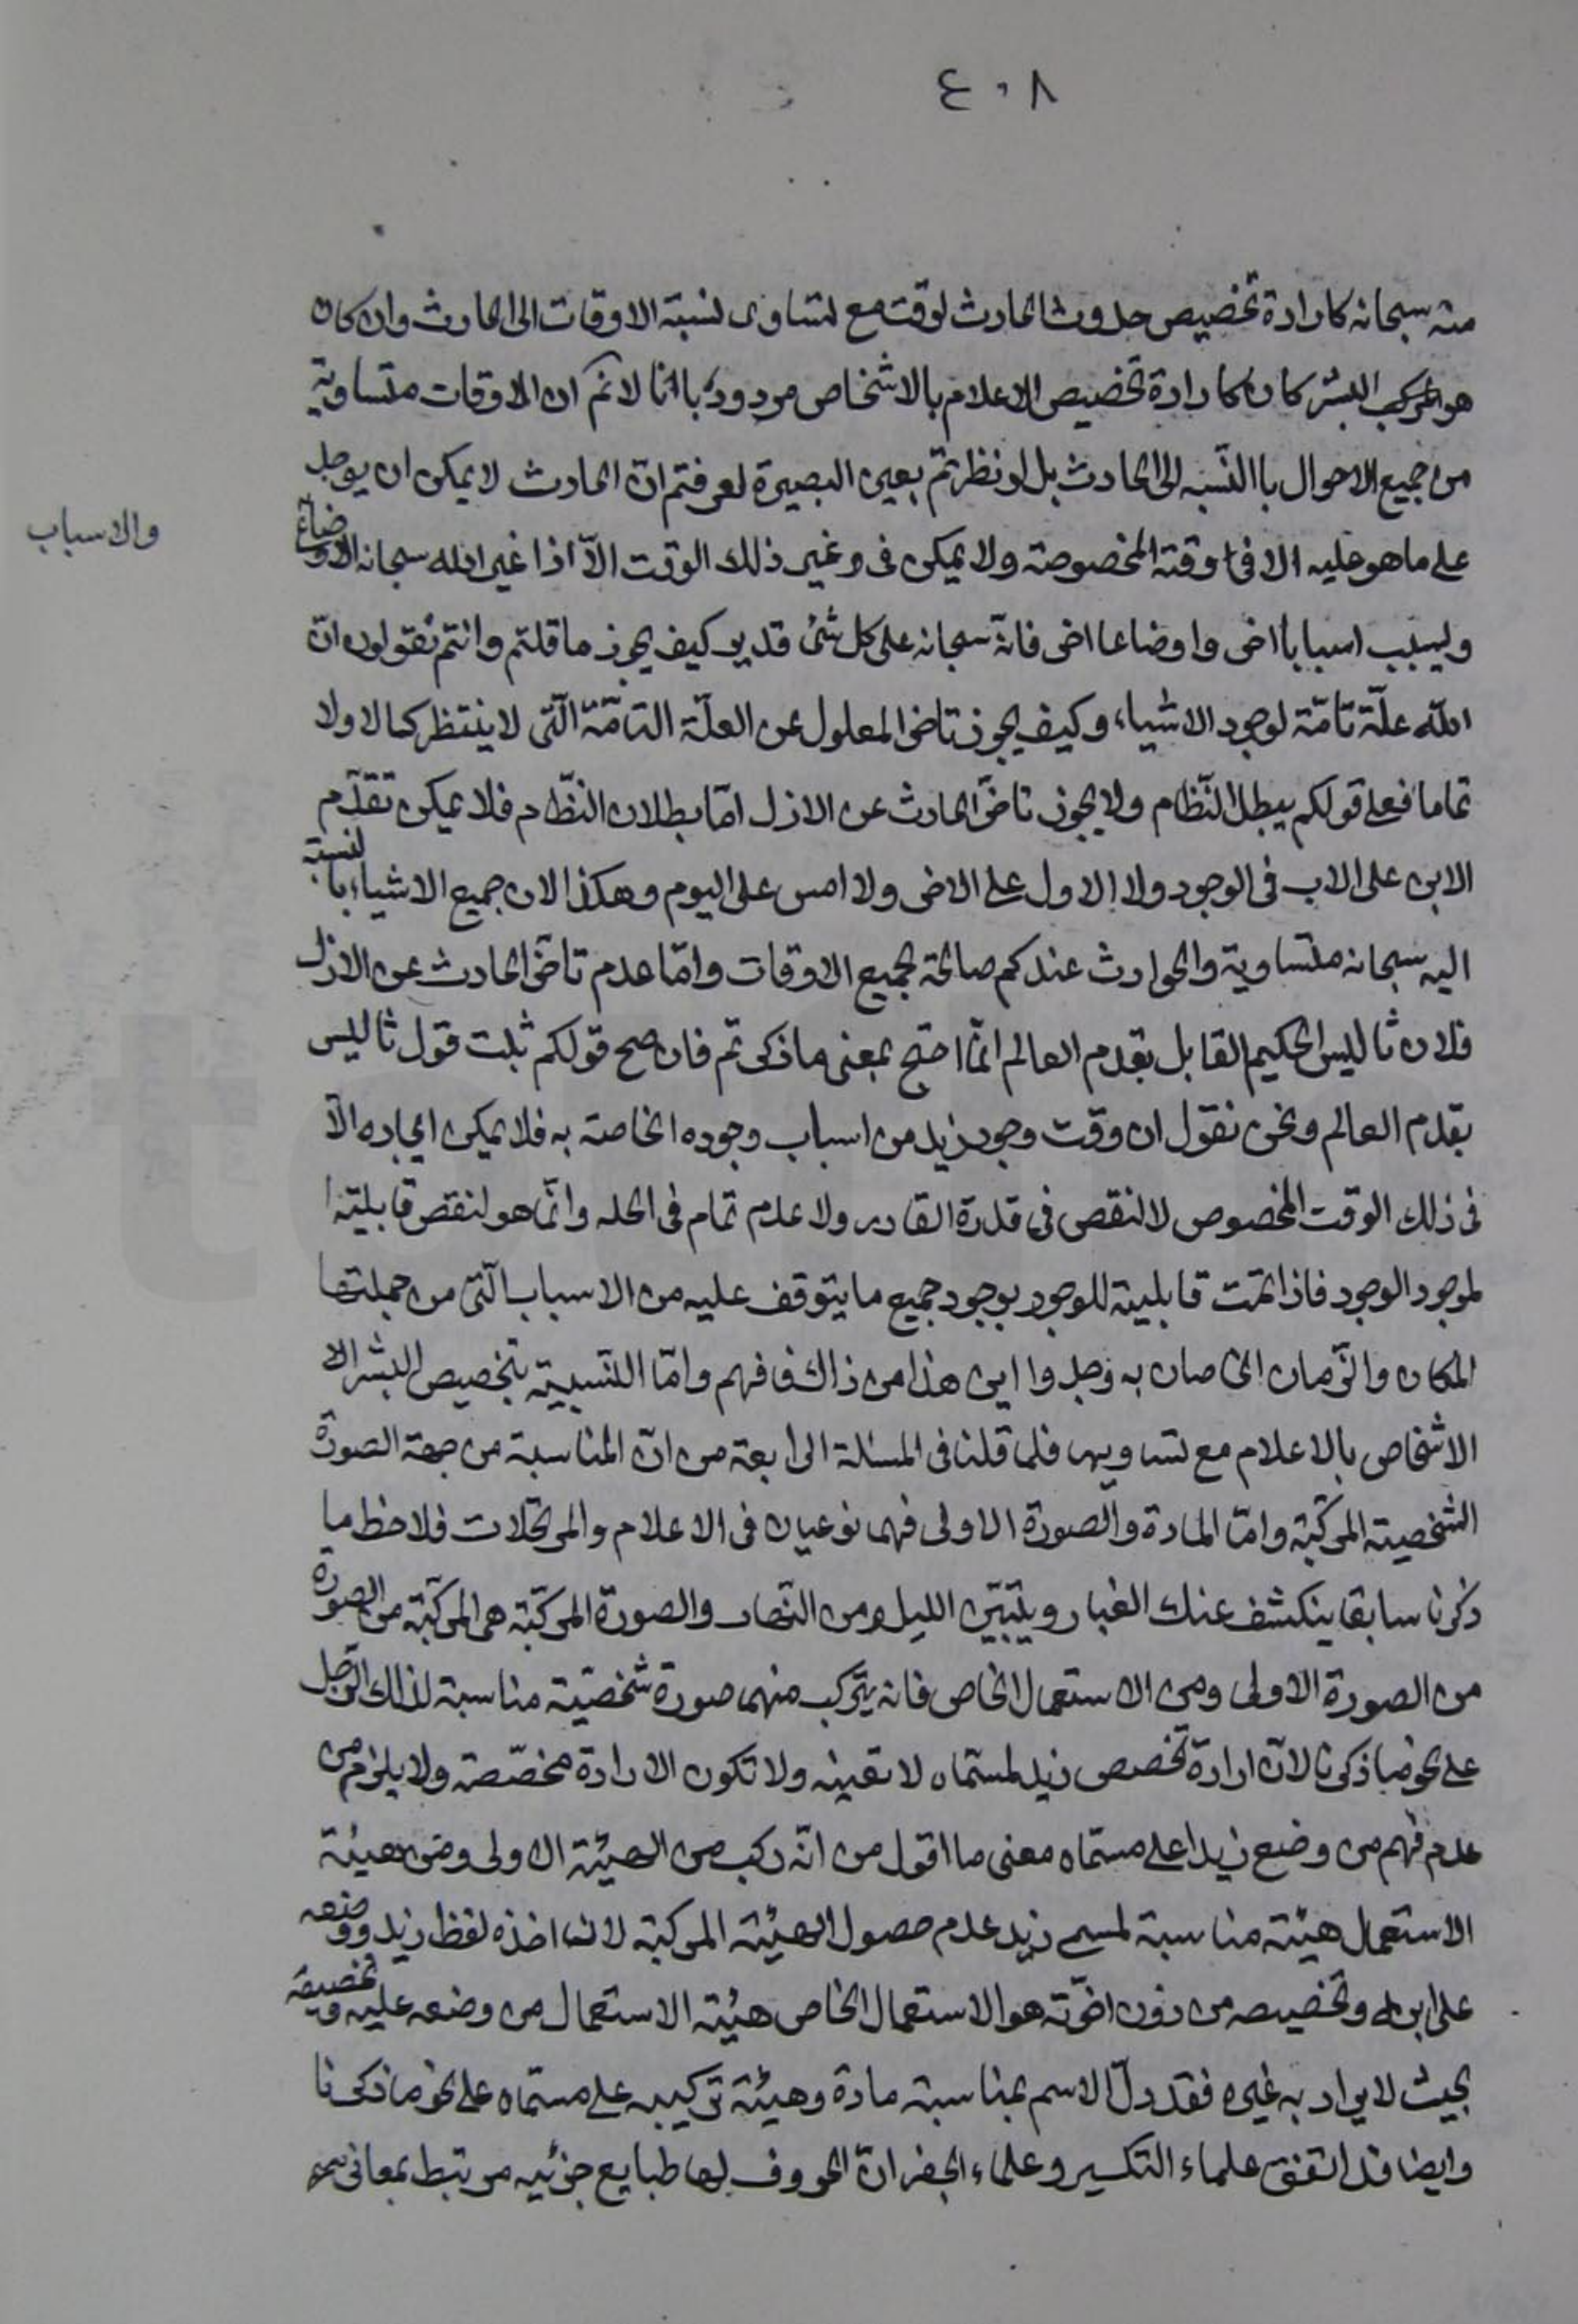 ٤٠٨
منه سبحانه كارادة تخصيص حدوث الحادث لوقت مع تساوى نسبة الاوقات الى الحادث وان كان
هو البشر كان كارادة تخصيص الاعلام بالاشخاص مردود باانا لانم ان الاوقات متساوية
من جميع الاحوال باالنسبه الى الحادث بل لو نظرتم بعين البصيرة لعرفتم انّ الحادث لا يمكن ان يوجد
على ما هو عليه الا فى وقته المخصوصة ولا يمكن فى غير ذلك الوقت الّا اذا غير الله سبحانه الاوضاع
والاسباب
ويسبب اسباباً اخرى واوضاعا اخرى فانّه سبحانه على كل شئ قدير كيف يجوز ما قلتم وانتم تقولون انّ
الله علّة تامّة لوجود الاشياء وكيف يجوز تاخر المعلول عن العلّة التامّة الّتى لا ينتظر كمالا ولا
تماما فعلى قولكم يبطل النّظام ولا يجوز تاخّر الحادث عن الازل امّا بطلان النظّام فلا يمكن تقدّم
الابن على الاب فى الوجود ولا الاول على الاخر ولا امس على اليوم وهكذا لان جميع الاشياء بالنسبة
اليه سبحانه متساوية والحوادث عندكم صالحة لجميع الاوقات وامّا عدم تاخّر الحادث عن الازل
فلان ثاليس الحكيم القابل بقدم العالم انّما احتج بمعنى ما ذكرتم فان صح قولكم ثبت قول ثاليس
بقدم العالم ونحن نقول ان وقت وجود زيد من اسباب وجوده الخاصة به فلا يمكن ايجاده الّا
فى ذلك الوقت المخصوص لا لنقص فى قدرة القادر ولا عدم تمام فى العلة وانّما هو لنقص قابليته
لموجود الوجود فاذا تمّت قابلية للوجود بوجود جميع ما يتوقف عليه من الاسباب الّتى من جملتها
المكان والزّمان الخاصان به وجد واين هذا من ذاك فافهم وامّا التسبيه بتخصيص البشر الا
الاشخاص بالاعلام مع تساويها فلما قلنا فى المسئلة الرابعة من انّ المناسبة من جهة الصورة
الشخصية المركّبة وامّا المادة والصورة الاولى فهما نوعيان فى الاعلام والمرتجلات فلاحظ ما
ذكرنا سابقا ينكشف عنك الغبار ويتبيّن الليل من النّهار والصورة المركّبة هى المركّبة من الصورة
من الصورة الاولى ومن الاستعمال الخاص فانه يتركب منهما صورة شخصيّة مناسبة لذلك الرّجل
على نحو ما ذكرنا لانّ ارادة تخصيص زيد لمسمّاه لا تعينه ولا تكون الارادة مخصّصة ولا يلزم من
عدم فهم من وضع زيدا على مسمّاه معنى ما اقول من انّه ركب من الهيئة الاولى ومن هيئة
الاستعمال هيئة مناسبة لمسمى زيد عدم حصول الهيئة المركبة لان اخذه لفظ زيد ووضعه
على ابنه وتخصيصه من دون اخوته هو الاستعمال الخاص هيئة الاستعمال من وضعه عليه وتخصيصه
بحيث لا يراد به غيره فقد دلّ الاسم بمناسبة مادة وهيئة تركيبه على مسمّاه على نحو ما ذكرنا
وايضا قد اتفق علماء التكسير وعلماء الجفر انّ الحروف لها طبايع جزئيه مرتبط بمعانى